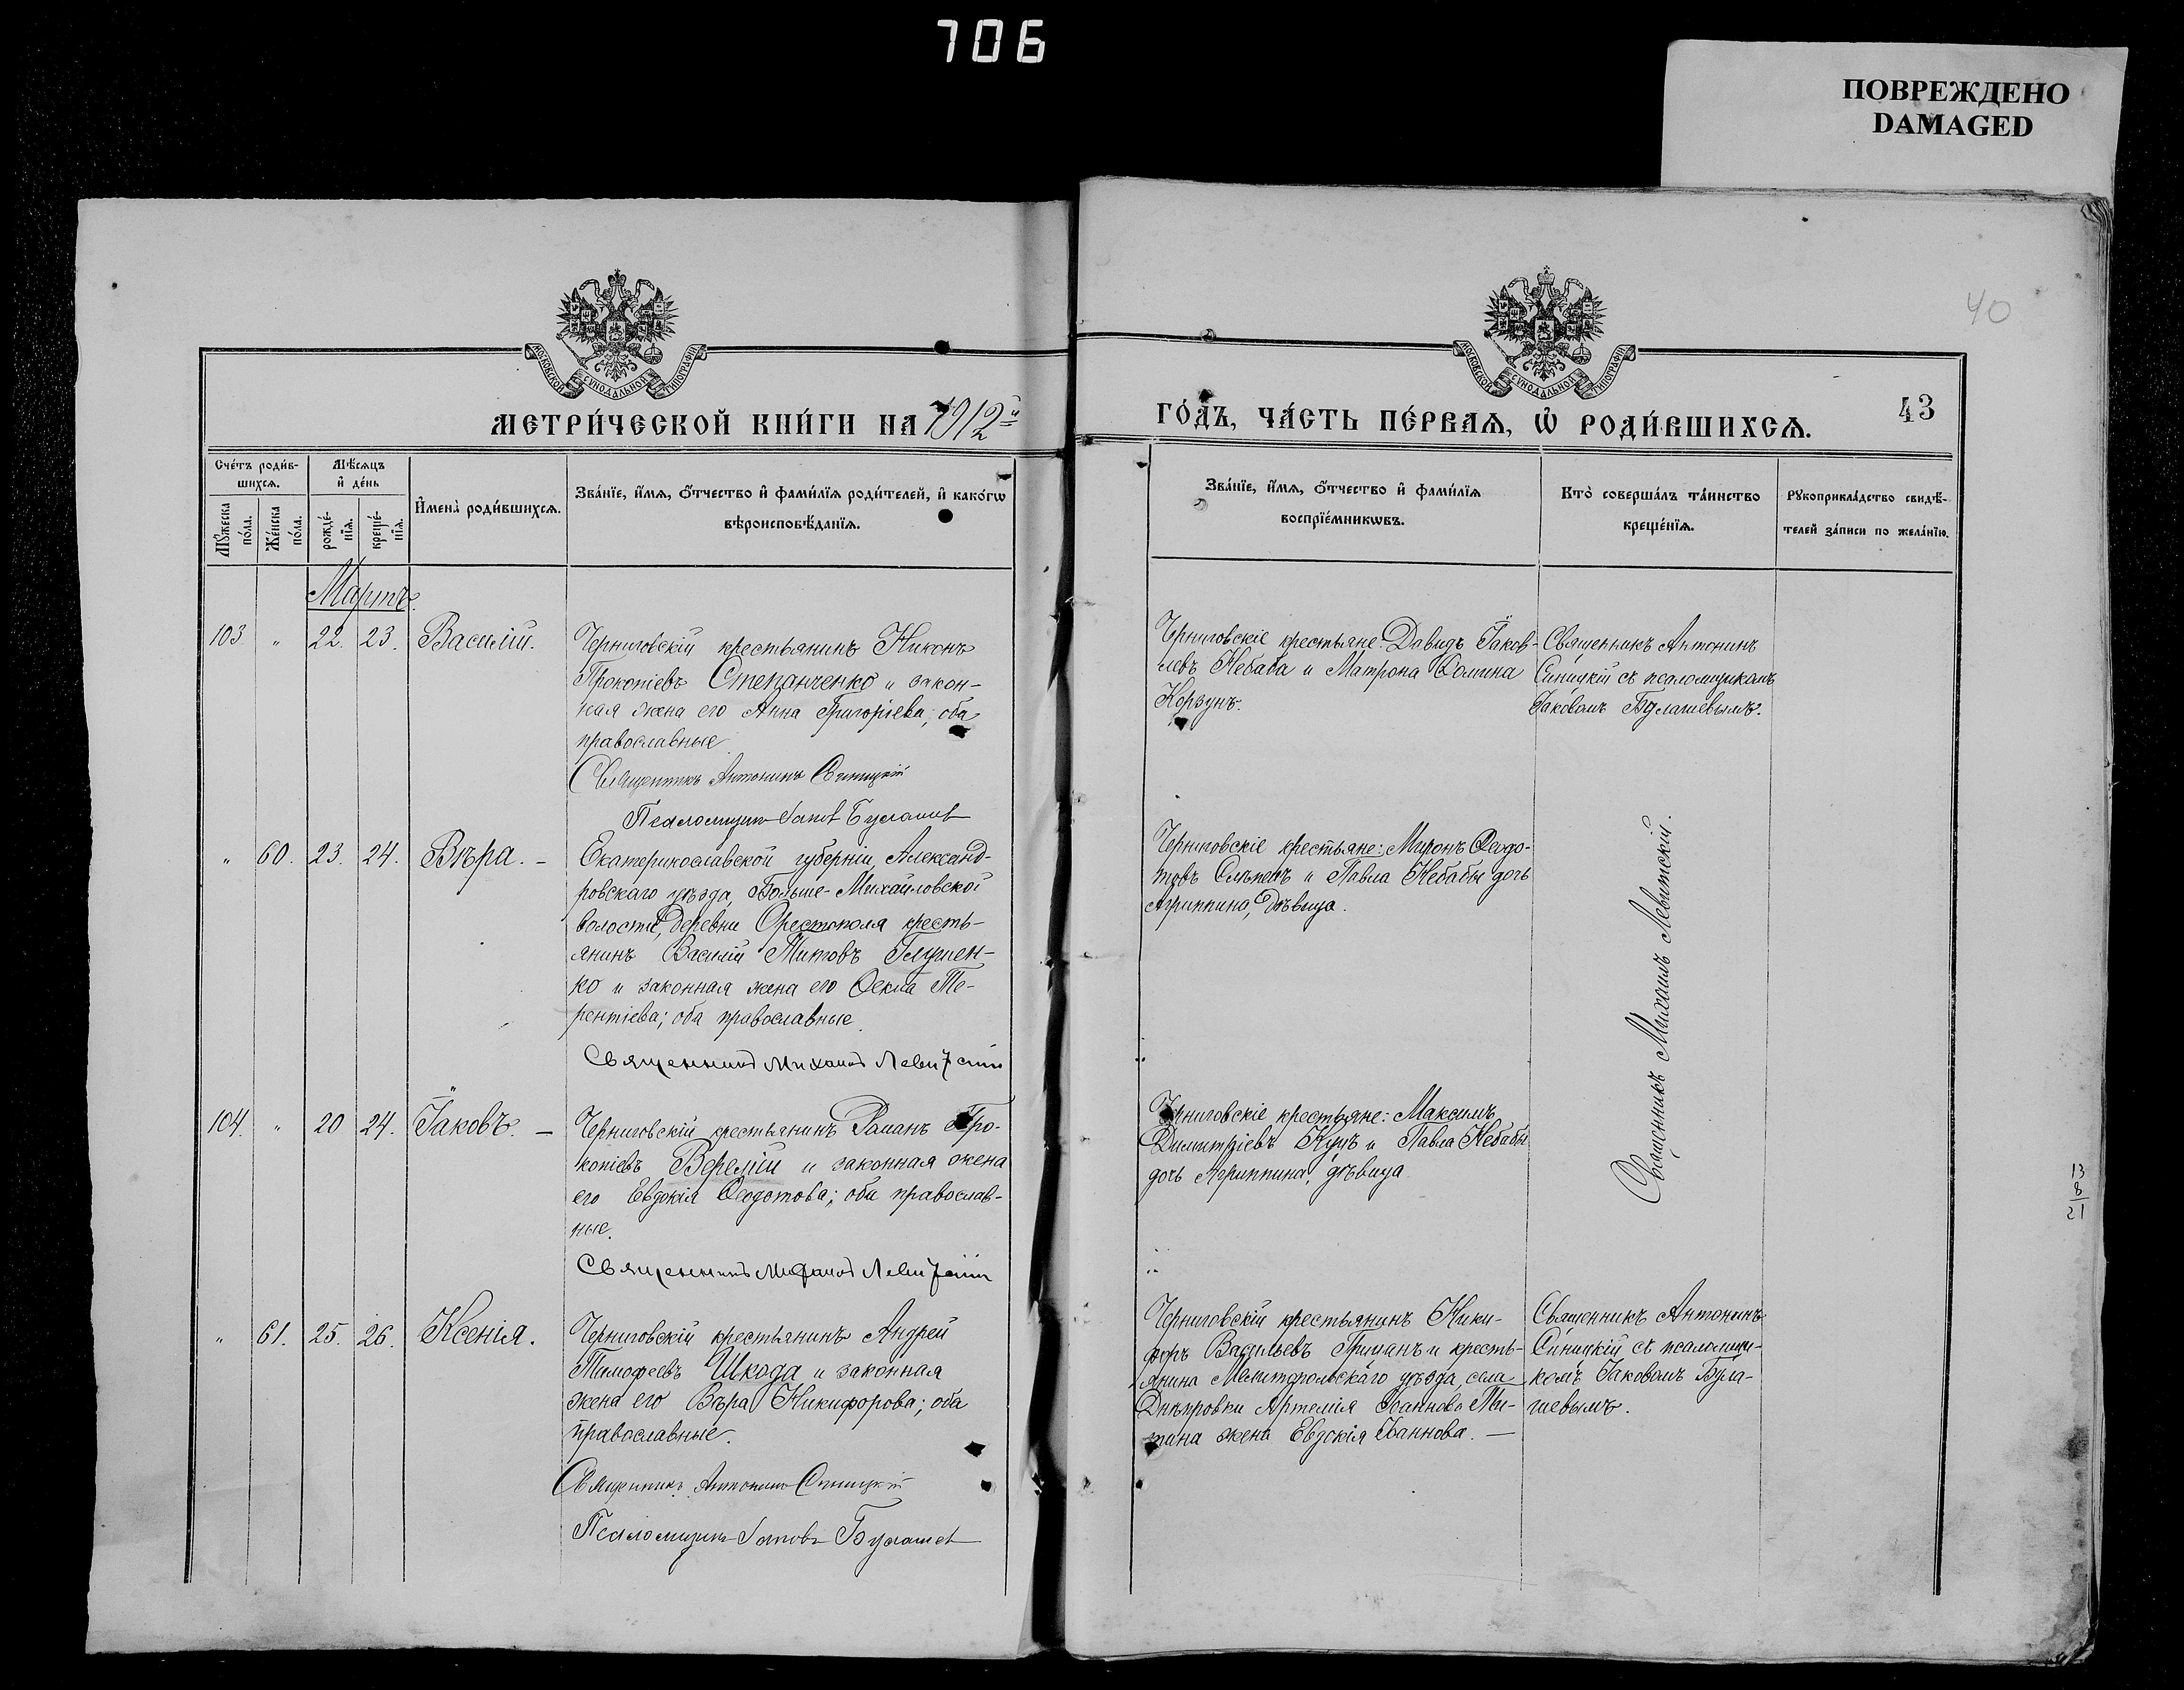 706
ПОВРЕЖДЕНО
DAMAGED
40
МОСКОВСКОЙ СѴНОДАЛЬНОЙ ТИПОГРАФІИ
МОСКОВСКОЙ СѴНОДАЛЬНОЙ ТИПОГРАФІИ
МЕТРИ́ЧЕСКОЙ КНИ́ГИ НА 1912й
ГО́ДЪ, ЧА́СТЬ ПЕ́РВАѦ, Ѡ҆ РОДИ́ВШИХСѦ.
43
Сче́тъ роди́в-
шихсѧ.
Мѣ́сѧцъ
и҆ де́нь
Мꙋ́жеска
по́ла.
Же́нска
по́ла.
рожде́-
нїѧ.
креще́-
нїѧ.
И҆мена̀ роди́вшихсѧ.
Зва́нїе, и҆́мѧ, о҆́тчество и҆ фами́лїѧ роди́телей, и҆ како́гѡ
вѣроисповѣ́данїѧ.
Зва́нїе, и҆́мѧ, о҆́тчество и҆ фами́лїѧ
воспрїе́мникѡвъ.
Кто̀ соверша́лъ та́инство
креще́нїѧ.
Рꙋкоприкла́дство свидѣ́-
телей за́писи по жела́нїю.
Мартъ.
103. " 22. 23. Василій.
Черниговскій крестьянинъ Никонъ
Прокопіевъ Степанченко и закон-
ная жена его Анна Григоріева; оба
православные.
Священникъ Антонинъ Синицкій
Псаломщикъ Іаковъ Булашев
Черниговскіе крестьяне: Давидъ Іаков-
левъ Небаба и Матрона Ѳомина
Корзунъ.
Священникъ Антонинъ
Синицкій съ псаломщикомъ
Іаковомъ Булашевымъ.
" 60. 23. 24. Вѣра. –
Екатеринославской губерніи, Александ-
ровскаго уѣзда, Больше-Михайловской
волости, деревни Орестополя кресть-
янинъ Василій Титовъ Глущен-
ко и законная жена его Ѳекла Те-
рентіева; оба православные.
Священникъ Михаилъ Левитскій
Черниговскіе крестьяне: Миронъ Ѳеодо-
товъ Слѣпецъ и Павла Небабы дочь
Агриппина, дѣвица.
Священникъ Михаилъ Левитскій.
104. " 20 24. Іаковъ. –
Черниговскій крестьянинъ Романъ Про-
копіевъ Веремій и законная жена
его Евдокія Ѳеодотова; оба православ-
ные.
Священникъ Михаилъ Левитскій
Черниговскіе крестьяне: Максимъ
Димитріевъ Куцъ и Павла Небабы
дочь Агриппина, дѣвица
13
8
21
" 61. 25. 26. Ксенія.
Черниговскій крестьянинъ Андрей
Тимофеевъ Шкода и законная
жена его Вѣра Никифорова; оба
православные.
Священникъ Антонинъ Синицкій
Псаломщикъ Іаковъ Булашев
Черниговскій крестьянинъ Ники-
форъ Васильевъ Грицанъ и кресть-
янина Мелитопольскаго уѣзда, села
Днѣпровки Артемія Іоаннова Ми-
тина жена Евдокія Іоаннова. –
Священникъ Антонинъ
Синицкій съ псаломщи-
комъ Іаковомъ Була-
шевымъ.